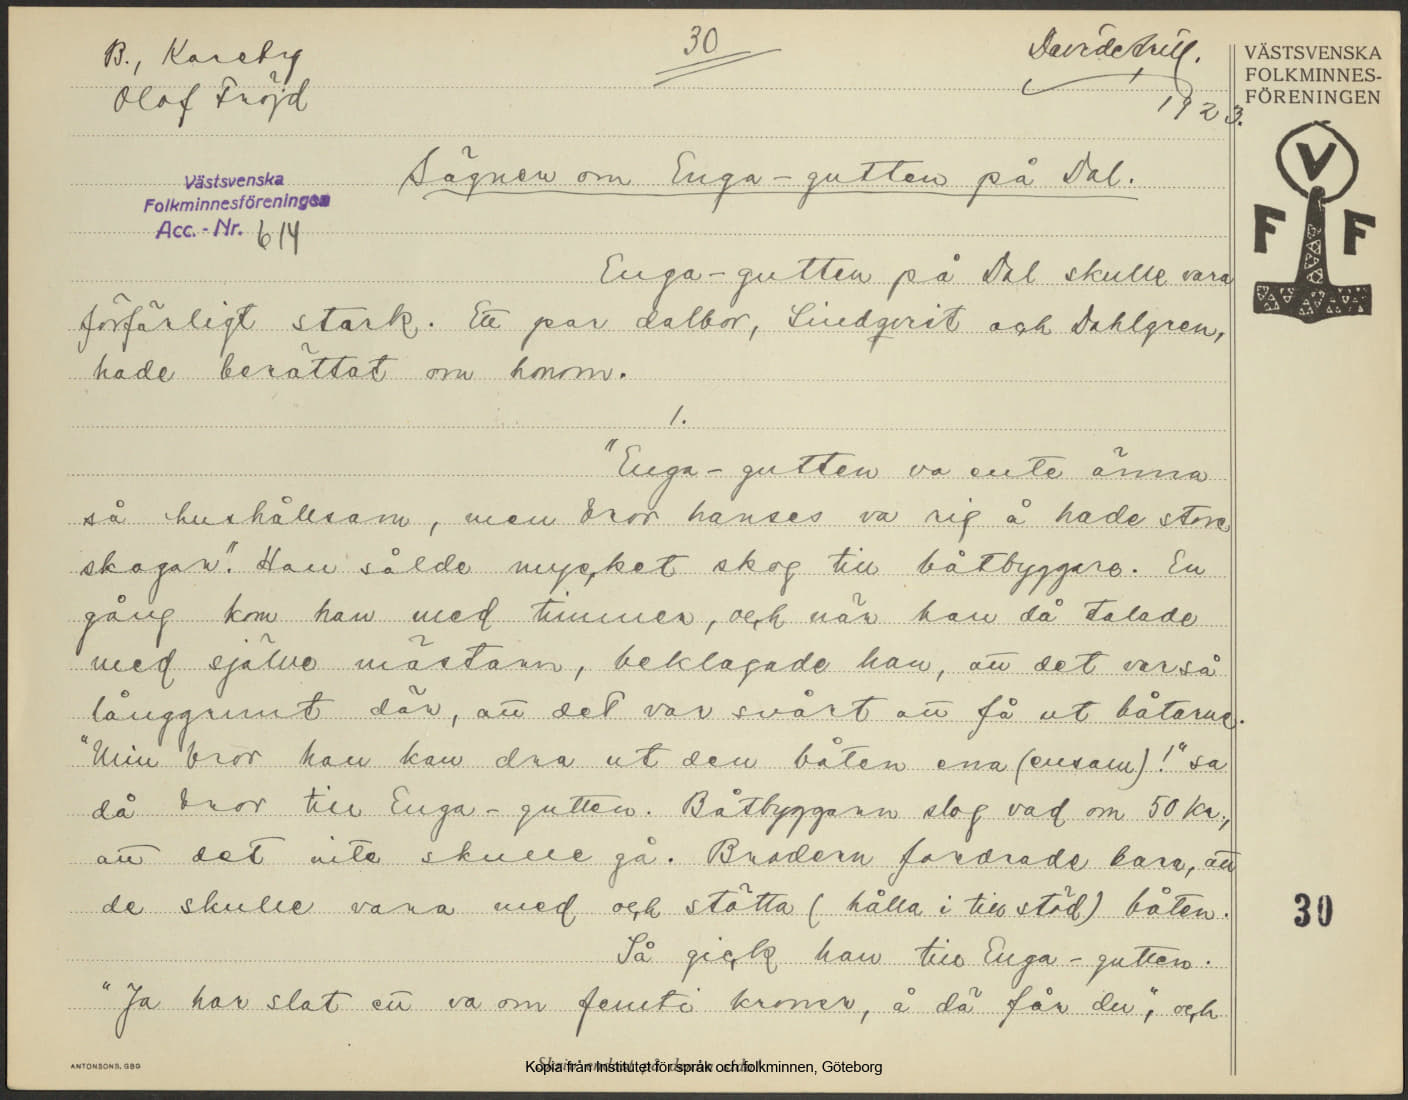 B., Kareby
Olof Fröjd
30
David Arill.
1923.
VÄSTSVENSKA
FOLKMINNES-
FÖRENINGEN
V
F F
Västsvenska
Folkminnesföreningen
Acc.-Nr. 614
Sägnen om Enga-gutten på Dal.
Enga-gutten på Dal skulle vara
förfärligt stark. Ett par dalbor, Lindqvist och Dahlgren,
hade berättat om honom.
1.
"Enga-gutten va ente änna
så hushållsam, men bror hanses va rig å hade store
skogar". Han sålde mycket skog till båtbyggare. En
gång kom han med timmer, och när han då talade
med själve mästarn, beklagade han, att det var så
långgrunt där, att det var svårt att få ut båtarne.
"Min bror han kan dra ut den båten ena (ensam)!" sa
då bror till Enga-gutten. Båtbyggarn slog vad om 50 kr.,
att det inte skulle gå. Brodern fordrade bara, att
de skulle vara med och stötta (hålla i till stöd) båten.
Så gick han till Enga-gutten.
"Ja har slat ett va om femti kroner, å dä får du", och
30
ANTONSONS, GBG
Kopia från Institutet för språk och folkminnen, Göteborg